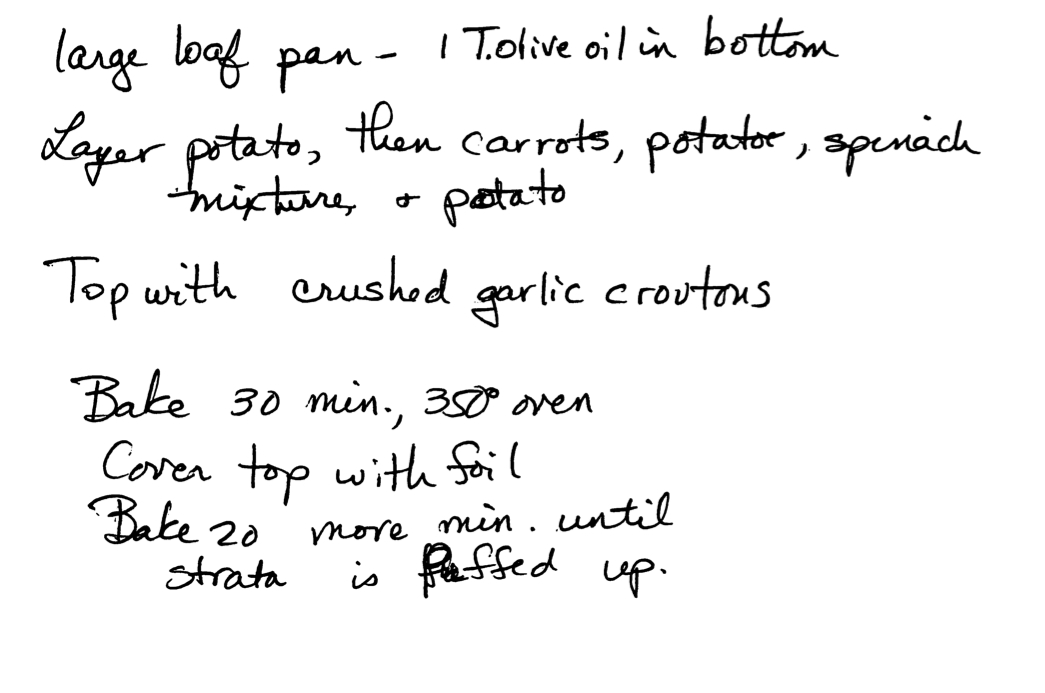 large loaf pan - 1 T. olive oil in bottom
Layer potato, then carrots, potatoe, spinach
mixture, + potato
Top with crushed garlic croutons
Bake 30 min., 350° oven
Cover top with foil
Bake 20 more min. until
strata is puffed up.